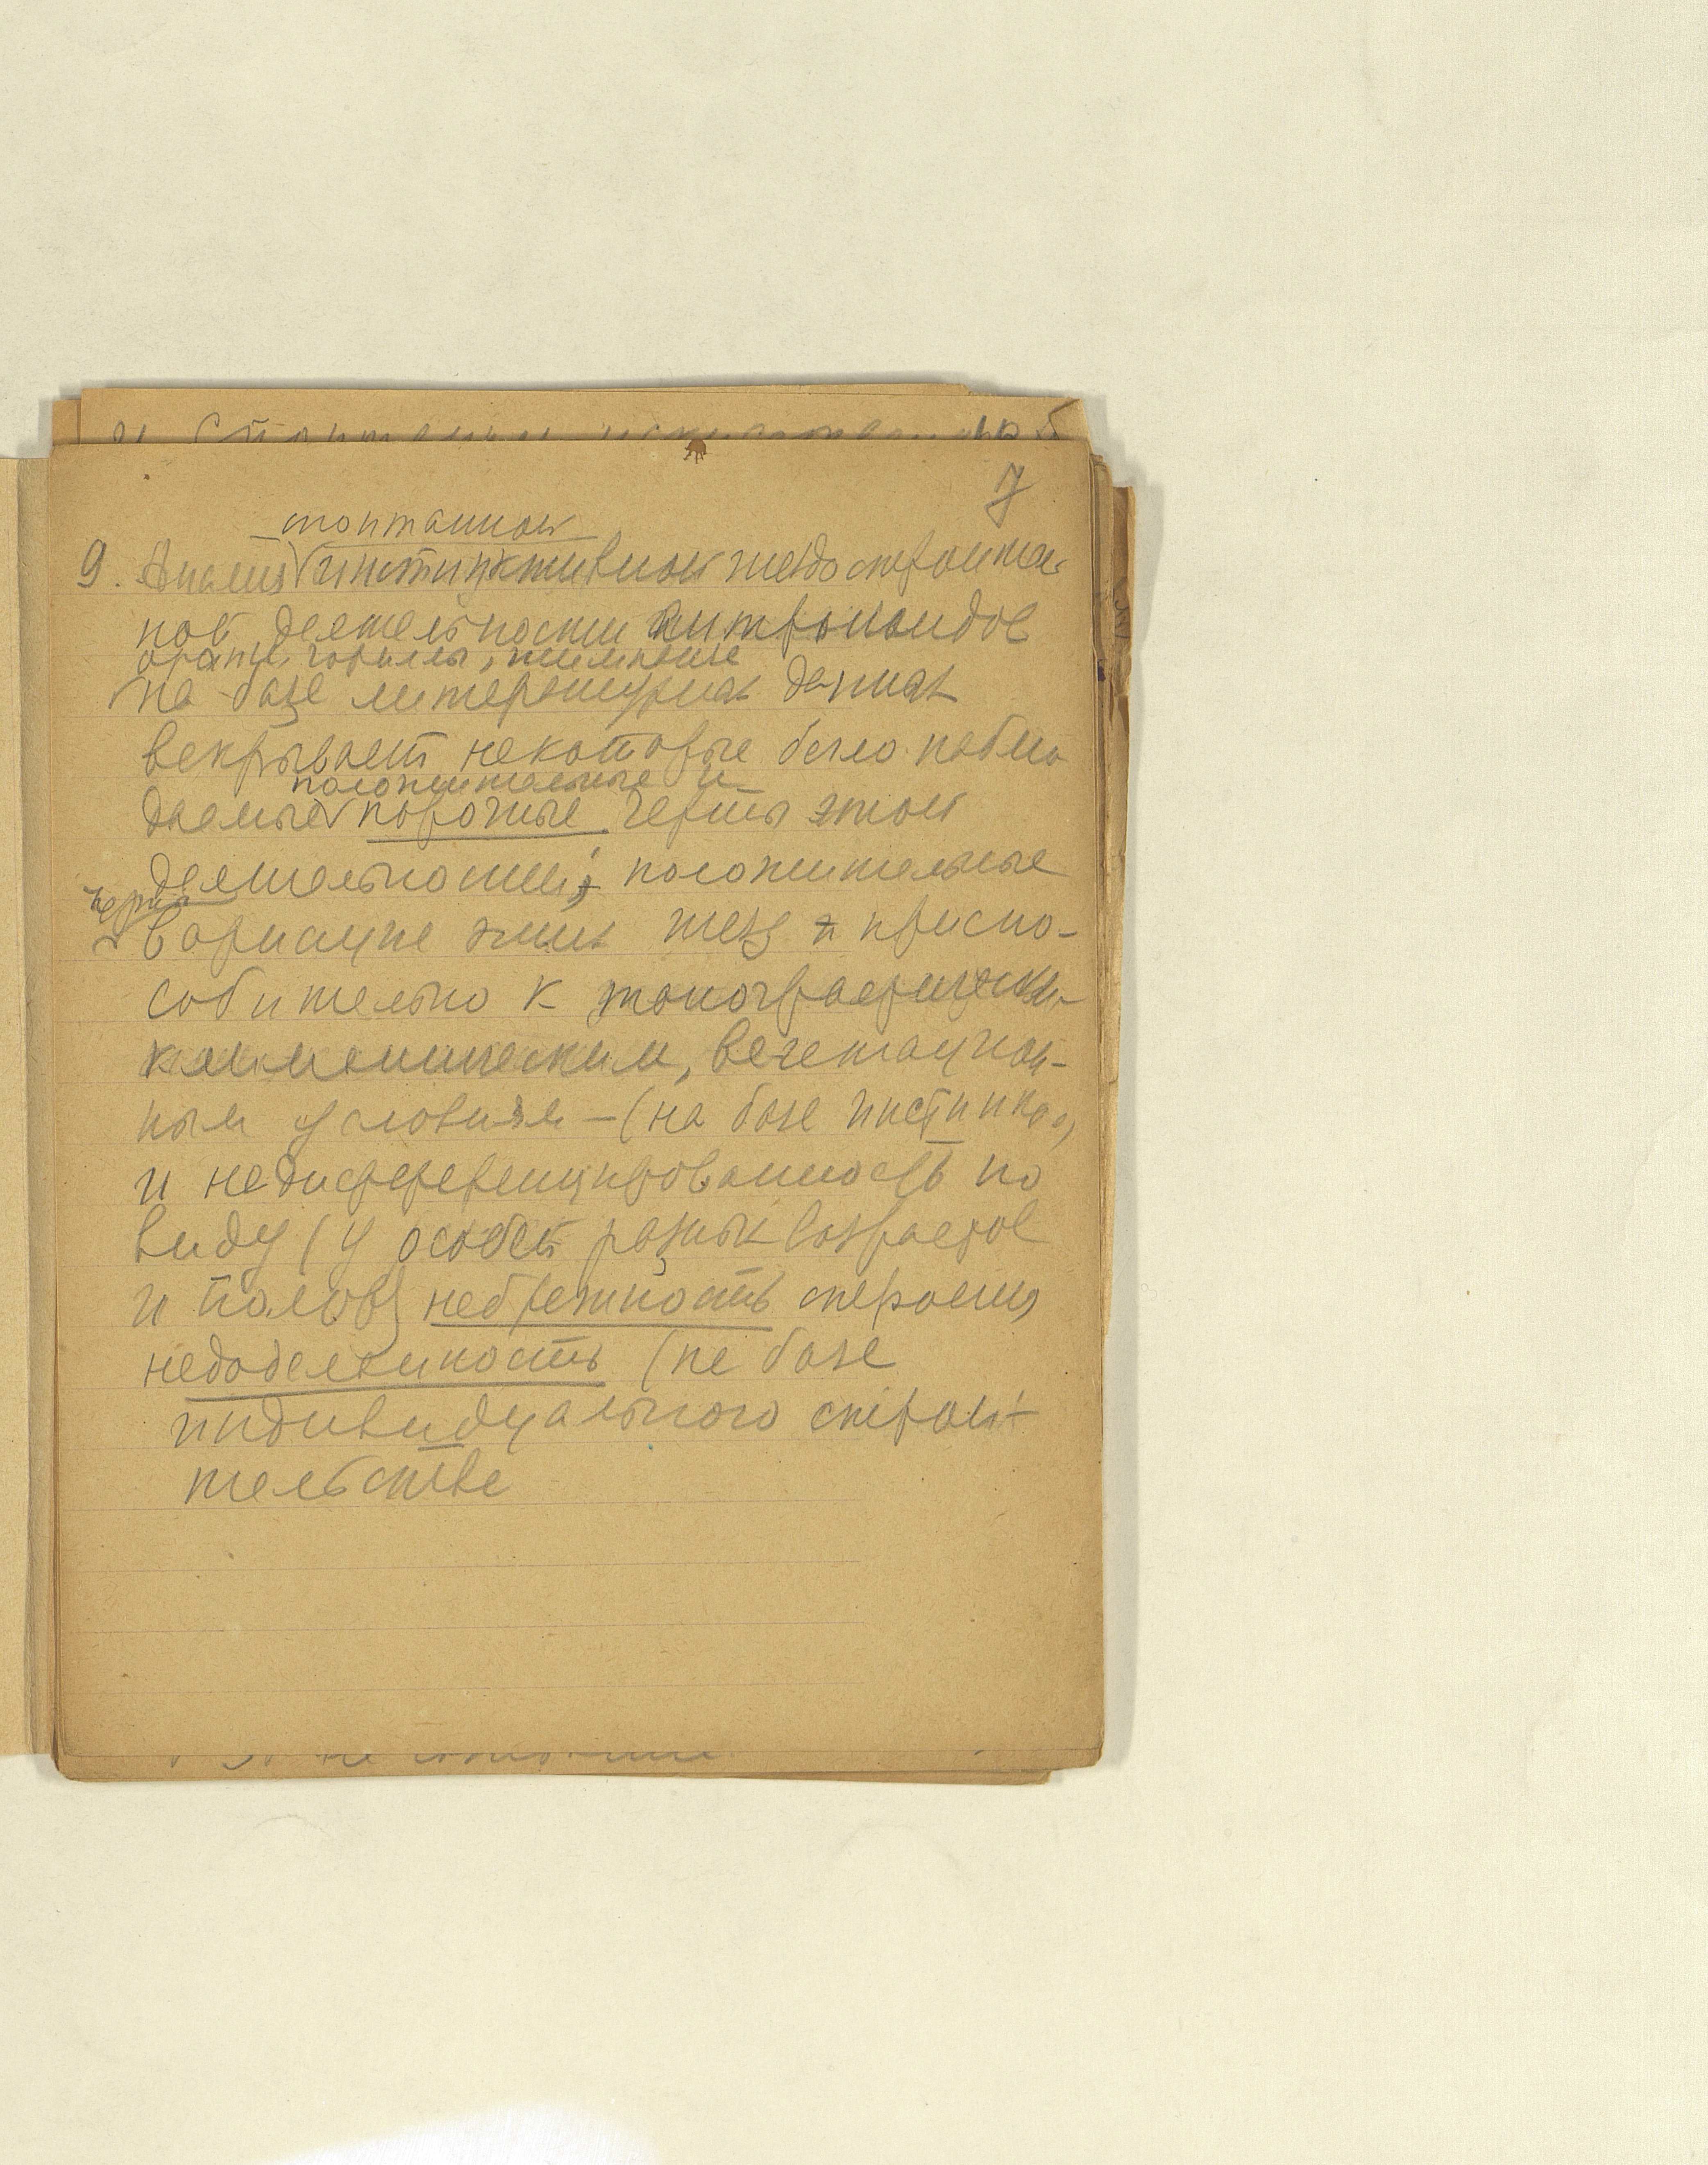 7
спонтанной
9. Анализ инстинктивной гнездостроитель
ной деятельности антропоидов
оранг, гориллы, шимпанзе
на базе литературных данных
вскрывает некоторые бегло наблю
положительные и
даемые порочные черты этой
деятельности; положительные
черты
вариации этих гнезд приспо-
собительно к топографическим
климатическим, вегетацион-
ным условиям – (на базе инстинкта)
и недифференцированность по
виду (у особей разных возрастов
и полов) небрежность строения
недоделанность (не базе
индивидуального строи-
тельстве